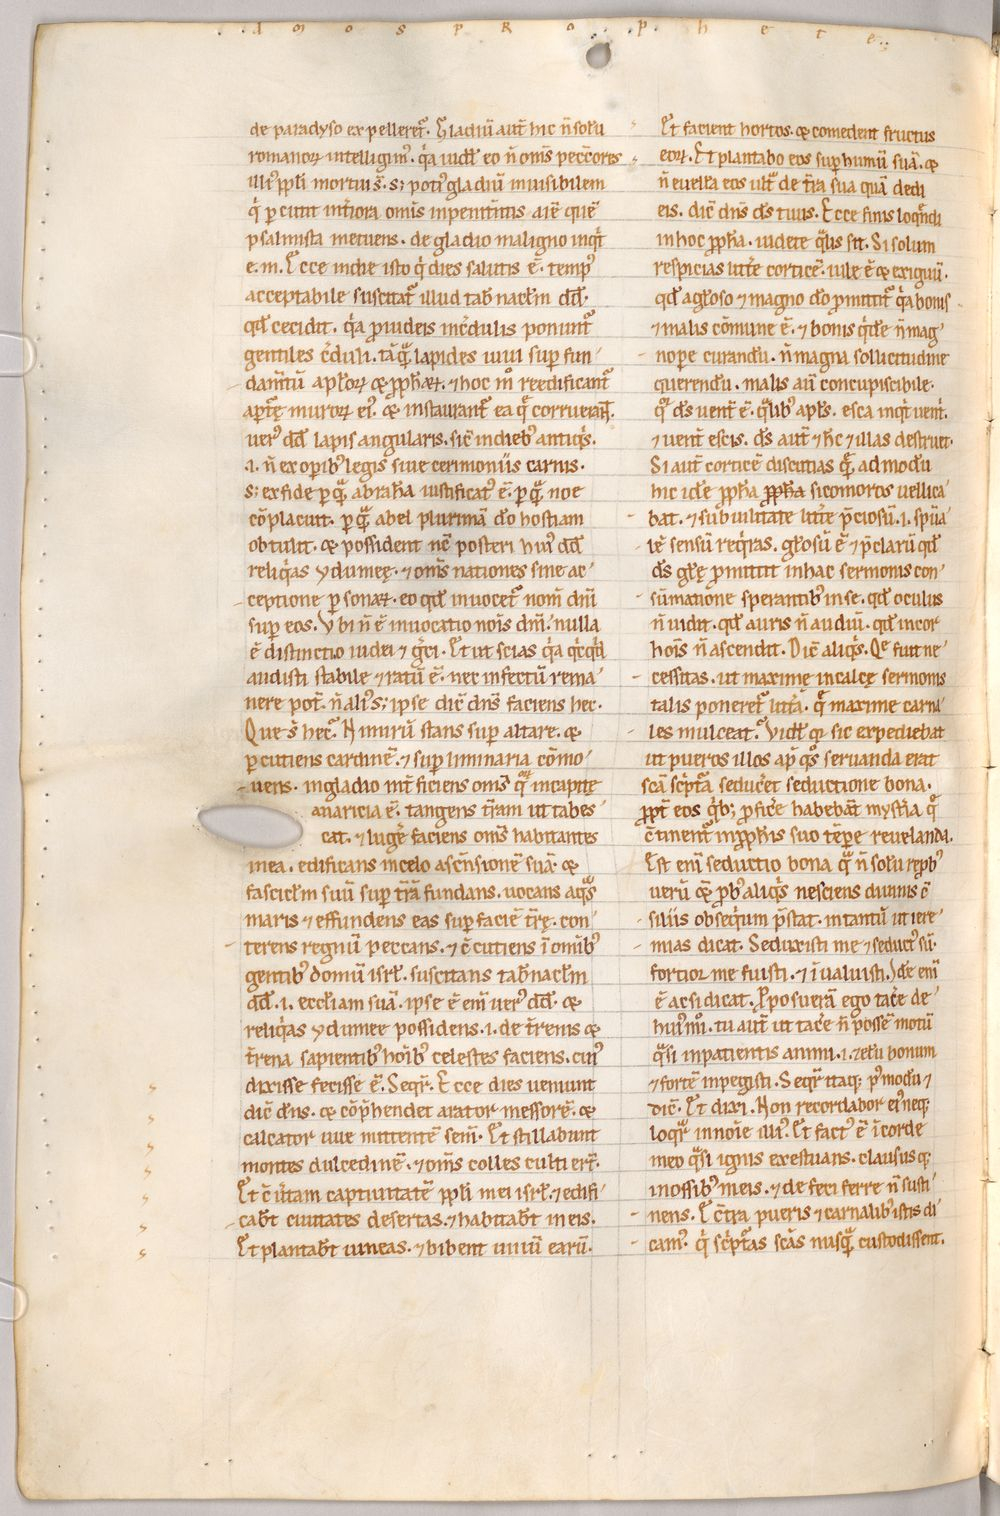 d m o s p R o p h e t e
de paradyso expelleret᷑. Gladiu̅ aut̅ hic n̅ solu̅
romanoꝝ intelligim᷒. q̇a uidel̅ eo n̅ om̅s peccatores
illi᷒ pp̅li mortui s̅. s; poti᷒ gladiu̅ inuisibilem
q̇ p̲cutit int̅iora om̅is inpenitentis aı̅e que̅
psalmista metuens. de gladio maligno inq̇t
e. m. Ecce in die isto q̇ dies salutis e̅. temp᷒
acceptabile suscitat᷑ illud tab̅nacl̅m d̅d̅.
qd̅ cecidit. q̇a p̲ iudeis incredulis ponunt᷑
gentiles c̅duli. ta̅q̅ lapides uiui sup̲ fun
dam̅tu̅ apl̅oꝝ ⁊ pp̅haꝝ. ⁊ hoc m̊ reedificant᷑
ap̲te̅ muroꝝ ei᷒. ⁊ instaurant᷑ ea q̅ corruerant̅.
uer᷒ d̅d̅ lapis angularis. sic̅ in dieb᷒ antiq̇s.
.i. n̅ ex op̲ib᷒ legis siue cerimoniis carnis.
s; ex fide p̲ qua̅ abraha̅ iustificat᷒ e̅. p̲ qua̅ noe
co̅placuit. p̲ qua̅ abel plurima̅ d̅o hostiam
obtulit. ⁊ possident n̅c posteri hui᷒ d̅d̅
reliq̇as ydumeę. ⁊ om̅s nationes sine ac
ceptione p̲sonaꝝ. eo qd̅ inuocet᷑ nom̅ d̅ni̅
sup̲ eos. Vbi n̅ e̅ inuocatio no̅is d̅ni̅. nulla
e̅ distinctio iudei ⁊ g̅ci. Et ut scias q̇a q̇cq̇d
audisti stabile ⁊ ratu̅ e̅. nec infectu̅ rema
nere pot̅. n̅ ali᷒ s; ipse dic̅ d̅n̅s faciens hec.
Que s̅ hec? Nimiru̅ stans sup̲ altare. ⁊
p̲cutiens cardine̅. ⁊ sup̲ liminaria co̅mo
uens. in gladio int̅ficiens om̅s quoꝝ in capite
auaricia e̅. tangens t̅ram ut tabes
cat. ⁊ luge̅ faciens om̅s habitantes
in ea. edificans in celo asce̅nsione̅ sua̅. ⁊
fascicl̅m suu̅ sup̲ t̅ra̅ fundans. uocans aquas
maris ⁊ effundens eas sup̲ facie̅ t̅rę. con
terens regnu̅ peccans. ⁊ c̅cutiens i̅ om̅ib᷒
gentib᷒ domu̅ isrl̅. suscitans tab̅nacl̅m
d̅d̅. .i. eccl̅iam sua̅. ipse e̅ eni̅ uer᷒ d̅d̅. ⁊
reliq̇as ydumee possidens. .i. de t̅renis ⁊
t̅rena sapientib᷒ ho̅ib᷒ celestes faciens. cui᷒
dixisse fecisse e̅. Seqr̅. Ecce dies ueniunt
dic̅ d̅n̅s. ⁊ co̅p̅hendet arator messore̅. ⁊
calcator uue mittente̅ sem̅. Et stillabunt
montes dulcedine̅. ⁊ om̅s colles culti er̅t.
Et c̅u̅tam captiuitate̅ pp̅li mei isrl̅. ⁊ edifi
cab̅t ciuitates desertas. ⁊ habitab̅t in eis.
Et plantab̅t uineas. ⁊ bibent uinu̅ earu̅.
Et facient hortos. ⁊ comedent fructus
eoꝝ. Et plantabo eos sup̲ humu̅ sua̅. ⁊
n̅ euella̅ eos ult᷑ de t̅ra sua qua̅ dedi
eis. dic̅ d̅n̅s d̅s tuus. Ecce finis loque̅di
in hoc pp̅ha. uidete qual̅is sit. Si solum
respicias litt̅e cortice̅. uile e̅ ⁊ exiguu̅.
qd̅ ag̅loso ⁊ magno d̅o p̲mittit᷑ q̇a bonis
⁊ malis co̅mune e̅. ⁊ bonis q̇de̅ n̅ mag
nope curandu̅. n̅ magna sollicitudine
querendu̅. malis aut̅ concupiscibile.
quoꝝ d̅s uent̅ e̅. quib᷒ apl̅s. esca inq̇t uent̅.
⁊ uent̅ escis. d̅s aut̅ ⁊ h̅c ⁊ illas destruet.
Si aut̅ cortice̅ discutias que̅ admodu̅
hic ide̅ pp̅ha pp̅ha sicomoros uellica
bat. ⁊ sub uilitate litt̅e p̅ciosu̅ .i. sp̅ua
le̅ sensu̅ req̇ras. gl̅osu̅ e̅ ⁊ p̅claru̅ qd̅
d̅s gl̅ę p̲mittit in hac sermonis con
su̅matione sperantib᷒ in se. qd̅ oculus
n̅ uidit. qd̅ auris n̅ audiu̅. qd̅ in cor
ho̅is n̅ ascendit. Dic̅ aliq̇s. Qe fuit ne
cessitas. ut maxime in calcę sermonis
talis poneret᷑ litt̅a. q̅ maxime carna
les mulceat? Videl̅ q; sic expediebat
ut pueros illos ap̅ q̊s seruanda erat
sc̅a sc̅pt᷑a seduc̅et seductione bona.
pp̲t̅ eos q̇b; p̲fice̅ habeba̅t myst̅ia q̅
c̅tinent᷑ in pp̅his suo te̅pe reuelanda.
Est eni̅ seductio bona qua̅ n̅ solu̅ rep̲b᷒
ueru̅ ⁊ p̲b᷒ aliq̇s nesciens diuinis c̅
siliis obseq̇um p̅stat. in tantu̅ ut iere
mias dicat. Seduxisti me ⁊ seduct᷒ su̅.
fortior me fuisti. ⁊ i̅ualuisti. Ide̅ eni̅
e̅ ac si dicat. P̲posuera̅ ego tace̅ de
hui᷒mo̅i. tu aut̅ ut tace̅ n̅ posse̅ motu̅
quasi inpatientis animi .i. zelu̅ bonum
⁊ forte̅ inpegisti. Seqr̅ itaq; p᷒ modu̅ ⁊
dic̅. Et dixi. Non recordabor ei᷒ neq;
loquar in no̅ie illi᷒. Et fact᷒ e̅ i̅ corde
meo quasi ignis exestuans. clausus q;
in ossib᷒ meis. ⁊ defeci ferre n̅ susti
nens. E c̅tra pueris ⁊ carnalib᷒ istis di
cam᷒. q̇ sc̅pt᷑as sc̅as nusqua̅ custodissent.